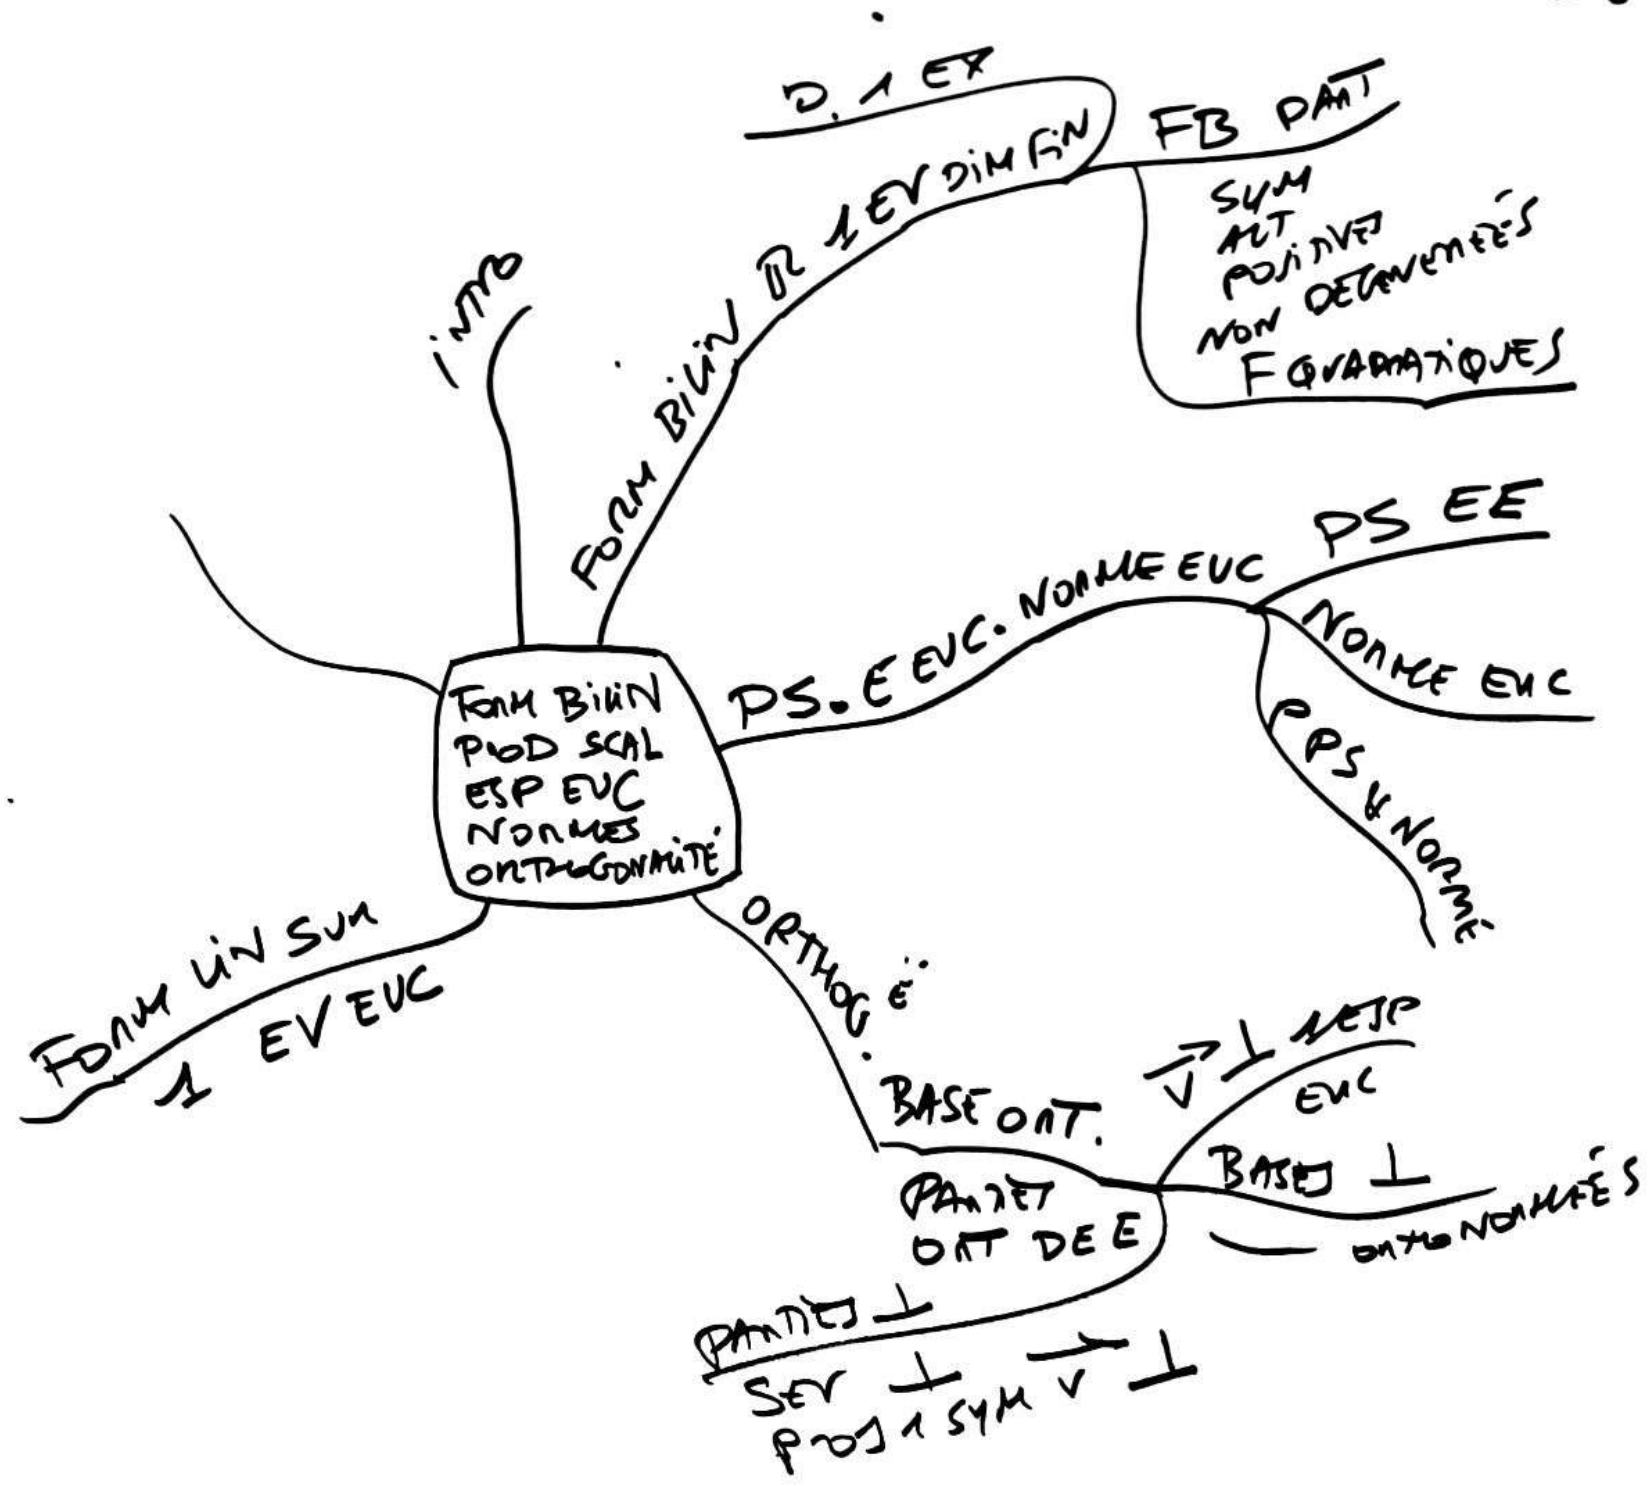 FORM BILIN
PROD SCAL
ESP EUC
NORMES
ORTHOGONALITÉ
INTRO
FORM BILIN R 1 EV DIM FIN
D. 1 EX
FB PART
SYM
ALT
POSITIVES
NON DEGENEREÉS
F QUADRATIQUES
PS. E EUC. NORME EUC
PS EE
NORME EUC
PPS & NORME
ORTHOG. E
BASE ORT.
PARTIES
ORT DE E
V ⊥ 1 ESP
EUC
BASES ⊥
— ORTHONORMEÉS
PARTIES ⊥
SEV ⊥
PROJ 1 SYM V ⊥
FORM LIN SUR
1 EV EUC